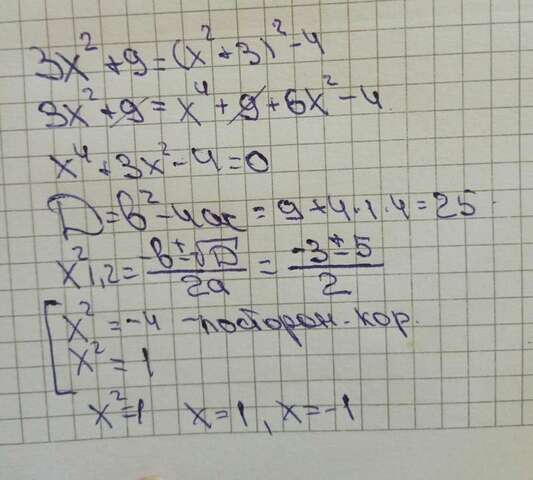 3x² + 9 = (x² + 3)² - 4
3x² + 9 = x⁴ + 9 + 6x² - 4
x⁴ + 3x² - 4 = 0
D = b² - 4ac = 9 + 4·1·4 = 25
x²1,2 = (-b ± √D)/2a = (-3 ± 5)/2
[x² = -4 - посторон. кор.
x² = 1
x² = 1 x = 1, x = -1